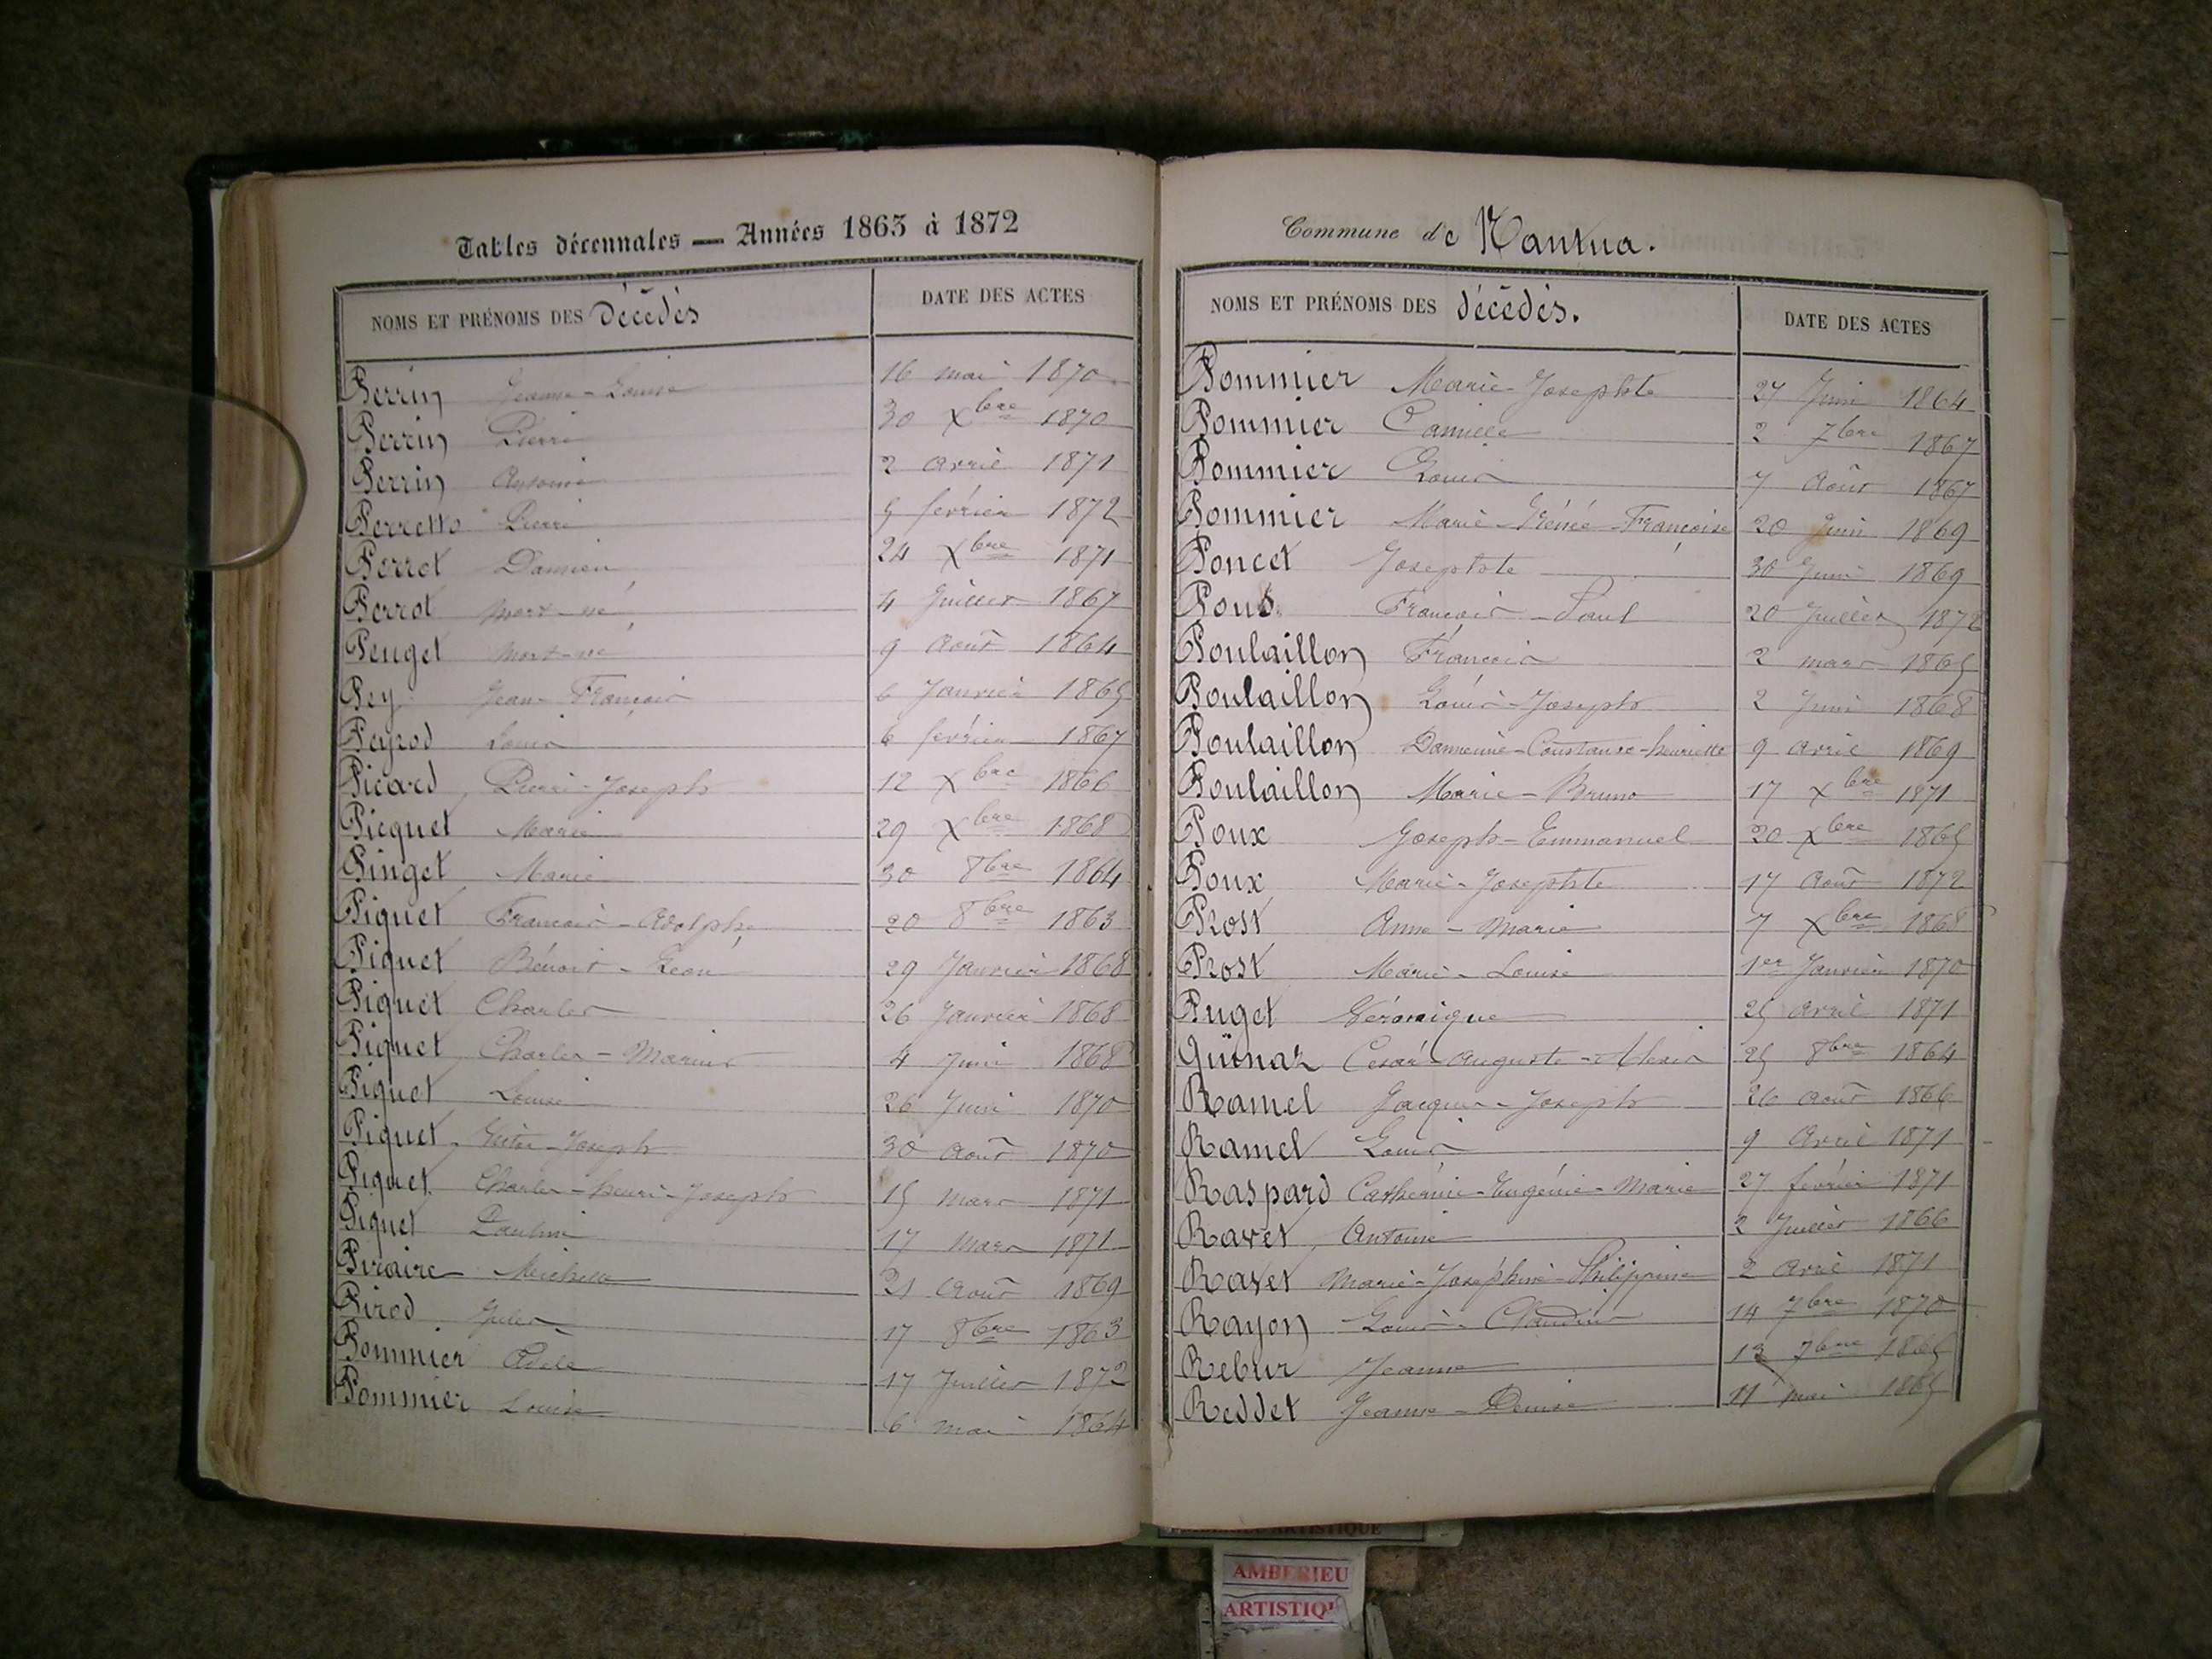 Tables décennales — Années 1863 à 1872
NOMS ET PRÉNOMS DES décédés DATE DES ACTES
Perrin Jeanne-Louise 16 mai 1870
Perrin Pierre 30 Xbre 1870
Perrin Antoine 2 avril 1871
Perretto Pierre 5 février 1872
Perrot Damien 24 Xbre 1871
Perrot mort-né 4 Juillet 1867
Peuget mort-né 9 Août 1864
Pey Jean-François 6 Janvier 1865
Peyrod Louis 6 février 1867
Picard Pierre-Joseph 12 Xbre 1866
Picquet Marie 29 Xbre 1868
Pinget Marie 30 8bre 1864
Piquet François-Adolphe 20 8bre 1863
Piquet Bénoit-Léon 29 Janvier 1868
Piquet Charles 26 Janvier 1868
Piquet Charles-Marius 4 Juin 1868
Piquet Louise 26 Juin 1870
Piquet Joseph 30 Août 1870
Piquet Charles-henri-Joseph 15 mars 1871
Piquet Pauline 17 Mars 1871
Piraire Michelle 21 Août 1869
Pirod Jules 17 8bre 1863
Pommier Adèle 17 Juillet 1872
Pommier Louise 6 mai 1864
Commune de Nantua.
NOMS ET PRÉNOMS DES décédés. DATE DES ACTES
Pommier Marie-Josephte 27 Juin 1864
Pommier Camille 2 7bre 1867
Pommier Louis 7 Août 1867
Pommier Marie-Irénée-Françoise 20 Juin 1869
Poncet Josephte 30 Juin 1869
Pous François-Paul 20 Juillet 1872
Poulaillon François 2 mars 1865
Poulaillon Louis-Joseph 2 Juin 1868
Poulaillon Constance-henriette 9 avril 1869
Poulaillon Marie-Bruno 17 Xbre 1871
Poux Joseph-Emmanuel 20 Xbre 1865
Poux Marie-Josephte 17 Août 1872
Prost Anne-Marie 7 Xbre 1868
Prost Marie-Louise 1er Janvier 1870
Puget Véronique 25 avril 1871
Quinaz César-Auguste-Alexis 25 8bre 1864
Ramel Jacques-Joseph 26 Août 1866
Ramel Louis 9 Avril 1871
Raspard Catherine-Eugénie-Marie 27 février 1871
Ravet Antoine 2 Juillet 1866
Ravet Marie-Joséphine-Philippine 2 Avril 1871
Rayon Louis-Claudius 14 7bre 1870
Rebur Jeanne 13 7bre 1865
Reddet Jeanne-Denise 11 mai 1865
ARTISTIQUE
AMBERIEU
ARTISTIQ